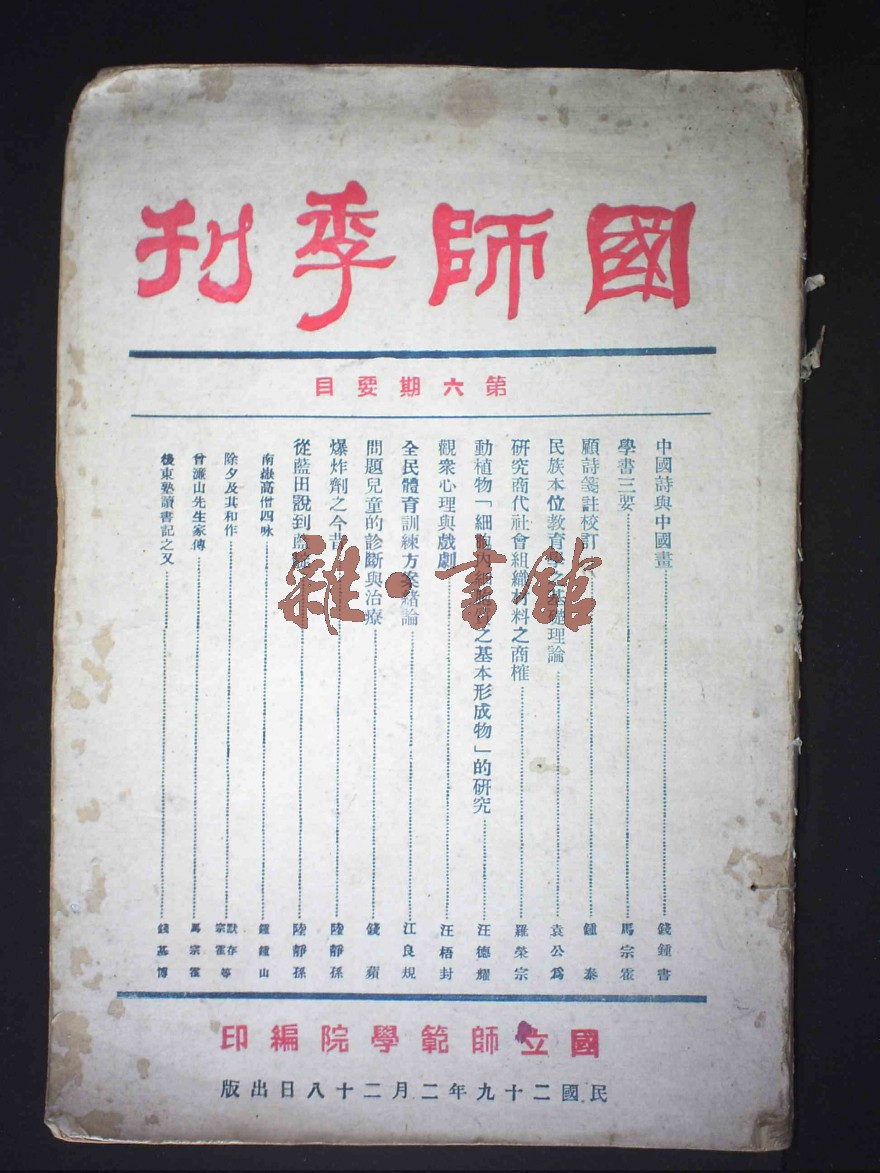 國師季刊
第六期要目
中國詩與中國畫 錢鍾書
學書三要 馬宗霍
顧詩箋註校訂 鍾泰
民族本位教育學之基礎理論 袁公爲
研究商代社會組織材料之商榷 羅榮宗
動植物「細胞內 之基本形成物」的研究 汪德耀
觀衆心理與戲劇 汪梧封
全民體育訓練方案緒論 江良規
問題兒童的診斷與治療 錢蘋
爆炸劑之今昔 陸靜孫
從藍田說到 陸靜孫
南嶽高僧四咏 鍾鍾山
除夕及其和作 默存 宗霍等
曾濂山先生家傳 馬宗霍
後東塾讀書記之又 錢基博
國立師範學院編印
民國二十九年二月二十八日出版
雜·書館